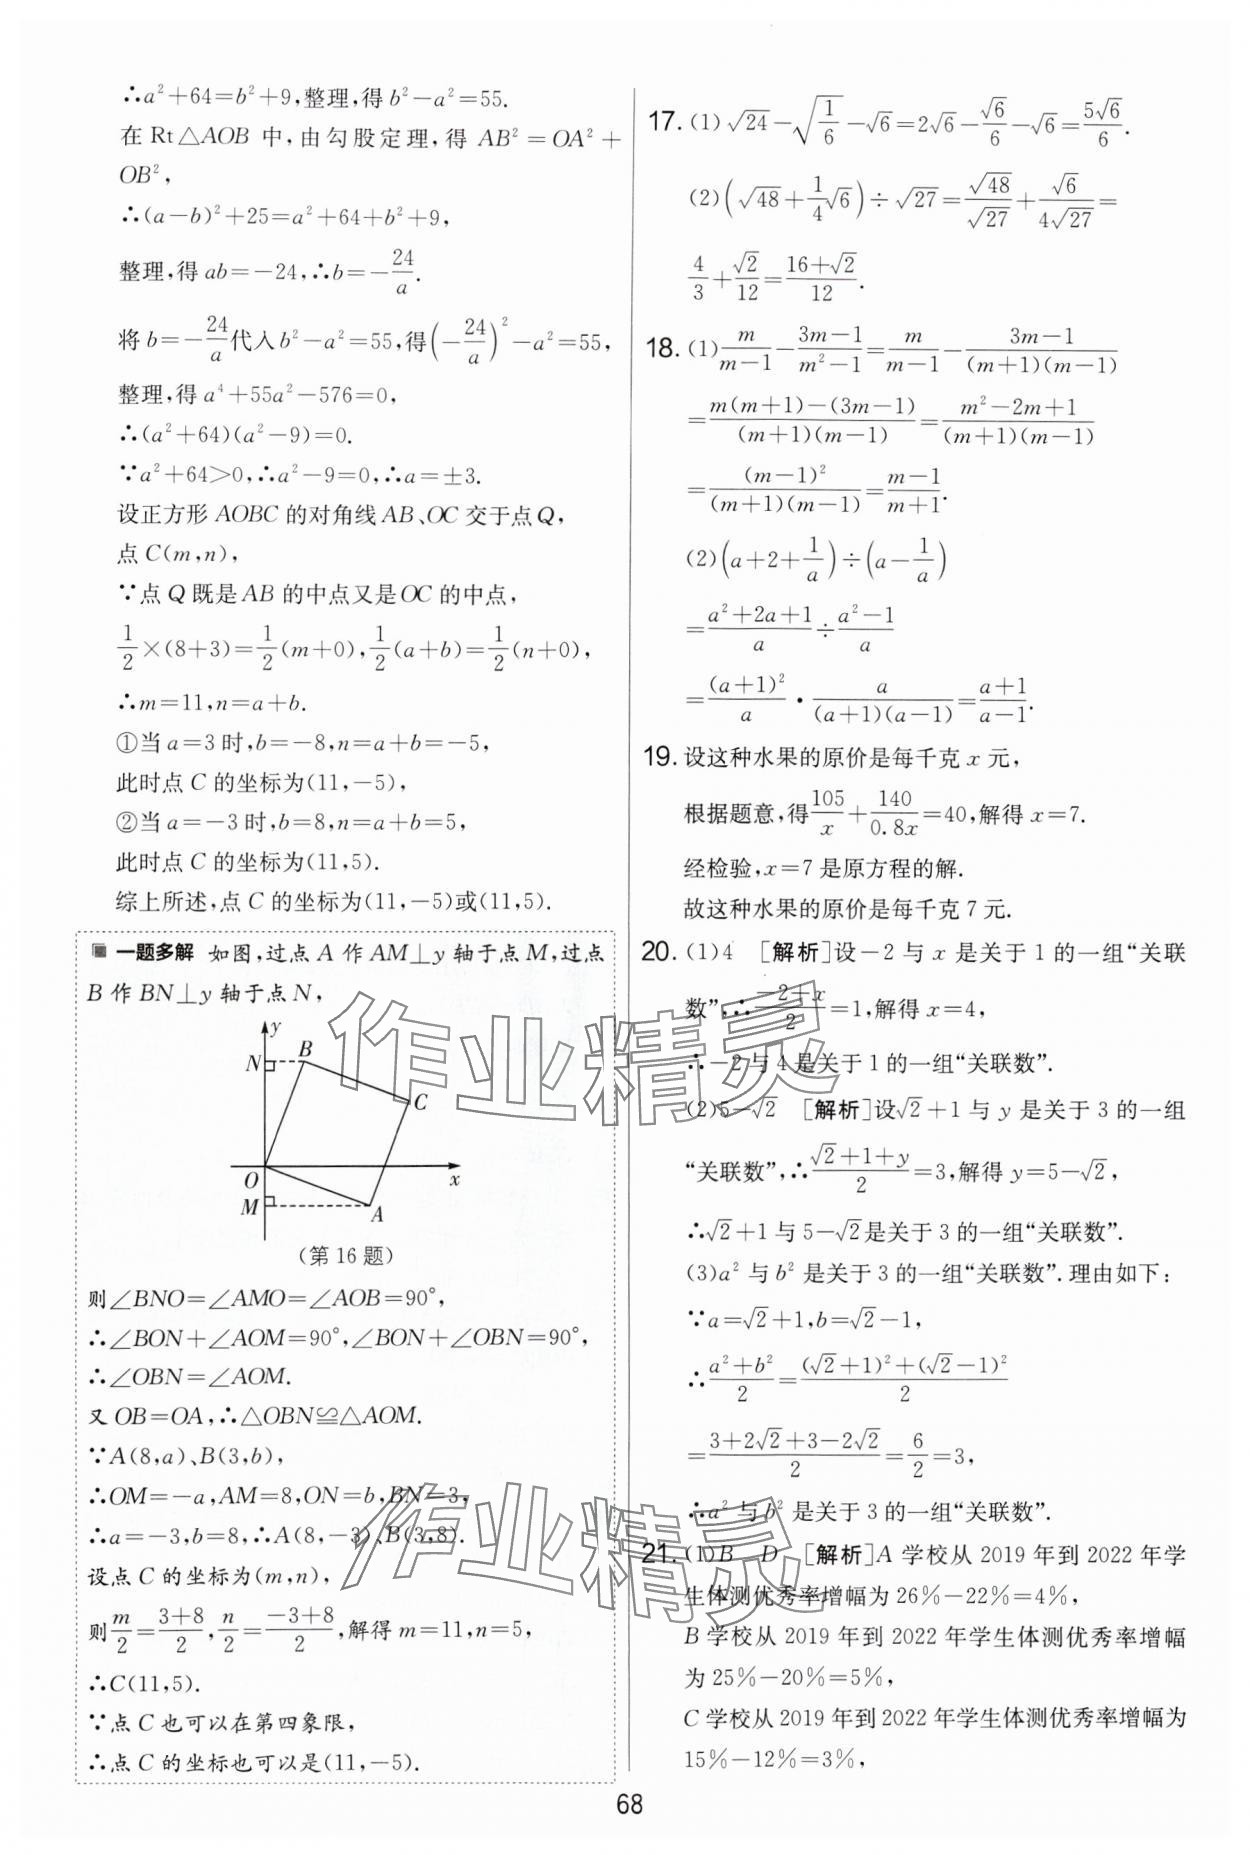 ∴a²+64=b²+9,整理,得 b²-a²=55.
在 Rt△AOB 中,由勾股定理,得 AB²=OA²+
OB²,
∴(a-b)²+25=a²+64+b²+9,
整理,得 ab=-24,∴b=-24/a.
将 b=-24/a代入 b²-a²=55,得(-24/a)²-a²=55,
整理,得 a⁴+55a²-576=0,
∴(a²+64)(a²-9)=0.
∵a²+64>0,∴a²-9=0,∴a=±3.
设正方形 AOBC 的对角线 AB、OC 交于点 Q,
点 C(m,n),
∵点 Q 既是 AB 的中点又是 OC 的中点,
1/2×(8+3)=1/2(m+0),1/2(a+b)=1/2(n+0),
∴m=11,n=a+b.
①当 a=3 时,b=-8,n=a+b=-5,
此时点 C 的坐标为(11,-5),
②当 a=-3 时,b=8,n=a+b=5,
此时点 C 的坐标为(11,5).
综上所述,点 C 的坐标为(11,-5)或(11,5).
一题多解 如图,过点 A 作 AM⊥y 轴于点 M,过点
B 作 BN⊥y 轴于点 N,
y
N
B
C
O
x
M
A
(第 16 题)
则∠BNO=∠AMO=∠AOB=90°,
∴∠BON+∠AOM=90°,∠BON+∠OBN=90°,
∴∠OBN=∠AOM.
又 OB=OA,∴△OBN≌△AOM.
∵A(8,a)、B(3,b),
∴OM=-a,AM=8,ON=b,BN=3,
∴a=-3,b=8,∴A(8,-3)、B(3,8).
设点 C 的坐标为(m,n),
则m/2=(3+8)/2,n/2=(-3+8)/2,解得 m=11,n=5,
∴C(11,5).
∵点 C 也可以在第四象限,
∴点 C 的坐标也可以是(11,-5).
17. (1)√24-√(1/6)-√6=2√6-√6/6-√6=5√6/6.
(2)(√48+1/4√6)÷√27=√48/√27+√6/(4√27)=
4/3+√2/12=(16+√2)/12.
18. (1)m/(m-1)-(3m-1)/(m²-1)=m/(m-1)-(3m-1)/((m+1)(m-1))
=(m(m+1)-(3m-1))/((m+1)(m-1))=(m²-2m+1)/((m+1)(m-1))
=(m-1)²/((m+1)(m-1))=(m-1)/(m+1).
(2)(a+2+1/a)÷(a-1/a)
=(a²+2a+1)/a÷(a²-1)/a
=(a+1)²/a·a/((a+1)(a-1))=(a+1)/(a-1).
19. 设这种水果的原价是每千克 x 元,
根据题意,得105/x+140/0.8x=40,解得 x=7.
经检验,x=7 是原方程的解.
故这种水果的原价是每千克 7 元.
20. (1)4 [解析]设-2 与 x 是关于 1 的一组“关联
数”,∴(-2+x)/2=1,解得 x=4,
∴-2 与 4 是关于 1 的一组“关联数”.
(2)5-√2 [解析]设√2+1 与 y 是关于 3 的一组
“关联数”,∴(√2+1+y)/2=3,解得 y=5-√2,
∴√2+1 与 5-√2是关于 3 的一组“关联数”.
(3)a² 与 b² 是关于 3 的一组“关联数”.理由如下:
∵a=√2+1,b=√2-1,
∴(a²+b²)/2=((√2+1)²+(√2-1)²)/2
=(3+2√2+3-2√2)/2=6/2=3,
∴a² 与 b² 是关于 3 的一组“关联数”.
21. (1)B D [解析]A 学校从 2019 年到 2022 年学
生体测优秀率增幅为 26%-22%=4%,
B 学校从 2019 年到 2022 年学生体测优秀率增幅
为 25%-20%=5%,
C 学校从 2019 年到 2022 年学生体测优秀率增幅为
15%-12%=3%,
68
作业精灵
作业精灵